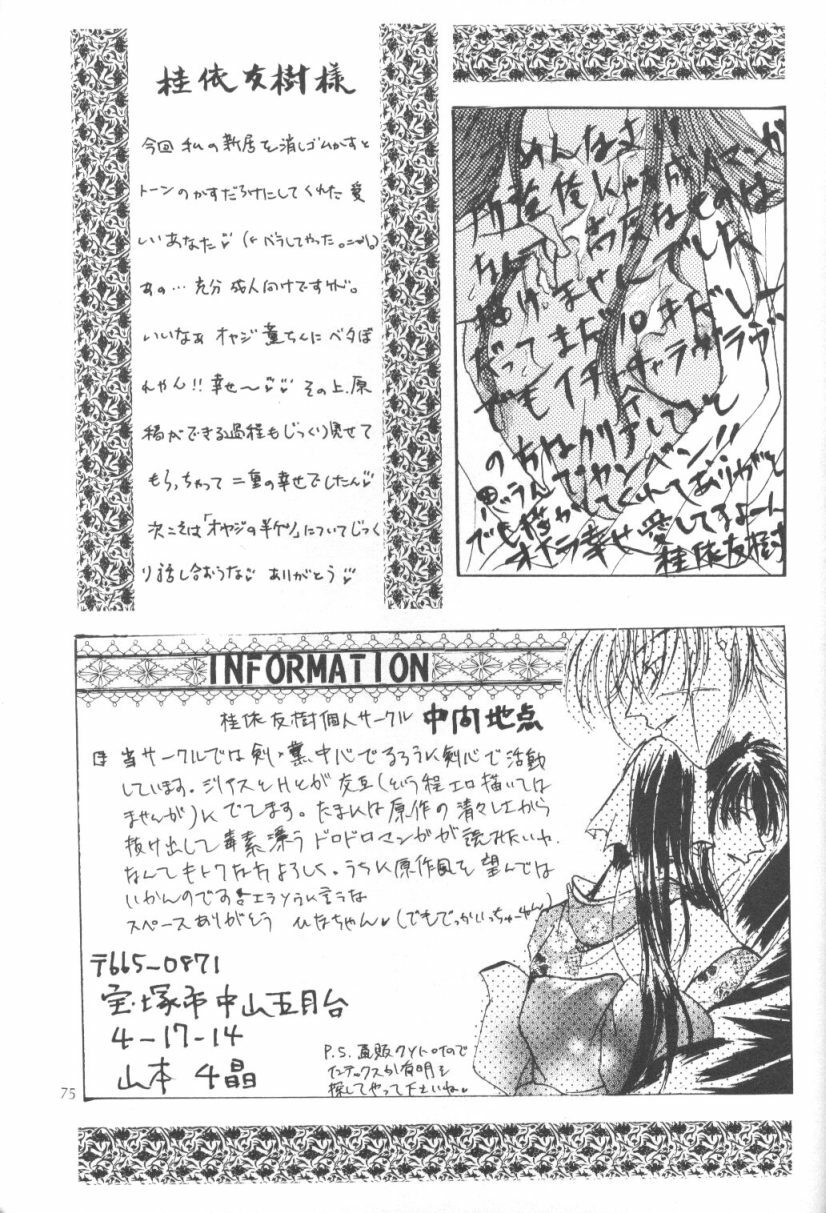 桂依友樹様
今回私の新居を消しゴムかすと
トーンのかすだらけにしてくれた愛
しいあなた♡(←バラしてやった。ニヤリ)
あの…充分成人向けですけど。
いいなぁオヤジ薫ちんにベタぼ
れやん!!幸せ〜♡♡その上、原
稿ができる過程もじっくり見せて
もらっちゃって二重の幸せでしたん♡
次こそは「オヤジの半ケツ」についてじっく
り話し合おうな♡ありがとう♡
ごめんなさい
所詮俺にゃ成人マンガ
なんて高度なものは
描けませんでした
だってまだ10才だしー
でもイチャイチャラヴラヴ
のちはクリアしてると
思うんでカンベン!!
でも描かしてくれてありがと
オイラ幸せ愛してるよーん
桂依友樹
INFORMATION
桂依友樹個人サークル 中間地点
当サークルでは剣・薫中心でるろうに剣心で活動
しています。シリアスとHとが交互(という程エロ描いては
ませんが)にでてます。たまには原作の清々しエから
抜け出して毒素漂うドロドロマンガが読みたいわ
なんてもトクな方よろしく。うちに原作風を望んでは
いかんのです
スペースありがとう ひなちゃん♡(でもでっかいっちゅーねん)
〒665-0871
宝塚市中山五月台
4-17-14
山本 千晶
P.S. 通販
インデックスか有明を
探してやって下さいね♡
75